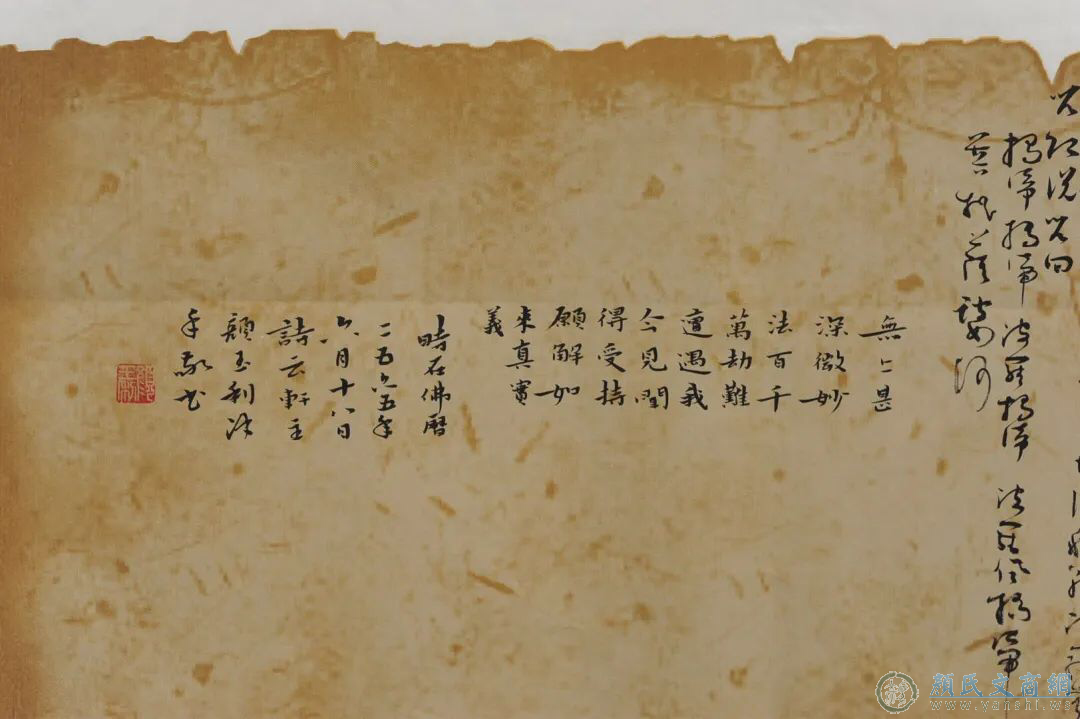 咒即說咒曰
揭帝揭帝 波羅揭帝 波羅僧揭帝
菩提薩婆訶
無上甚
深微妙
法百千
萬劫難
遭遇我
今見聞
得受持
願解如
來真實
義
時在佛曆
二五六五年
六月十八日
詩云軒主
顏玉利沐
手敬書
顏氏文商網
www.yanshi.ws